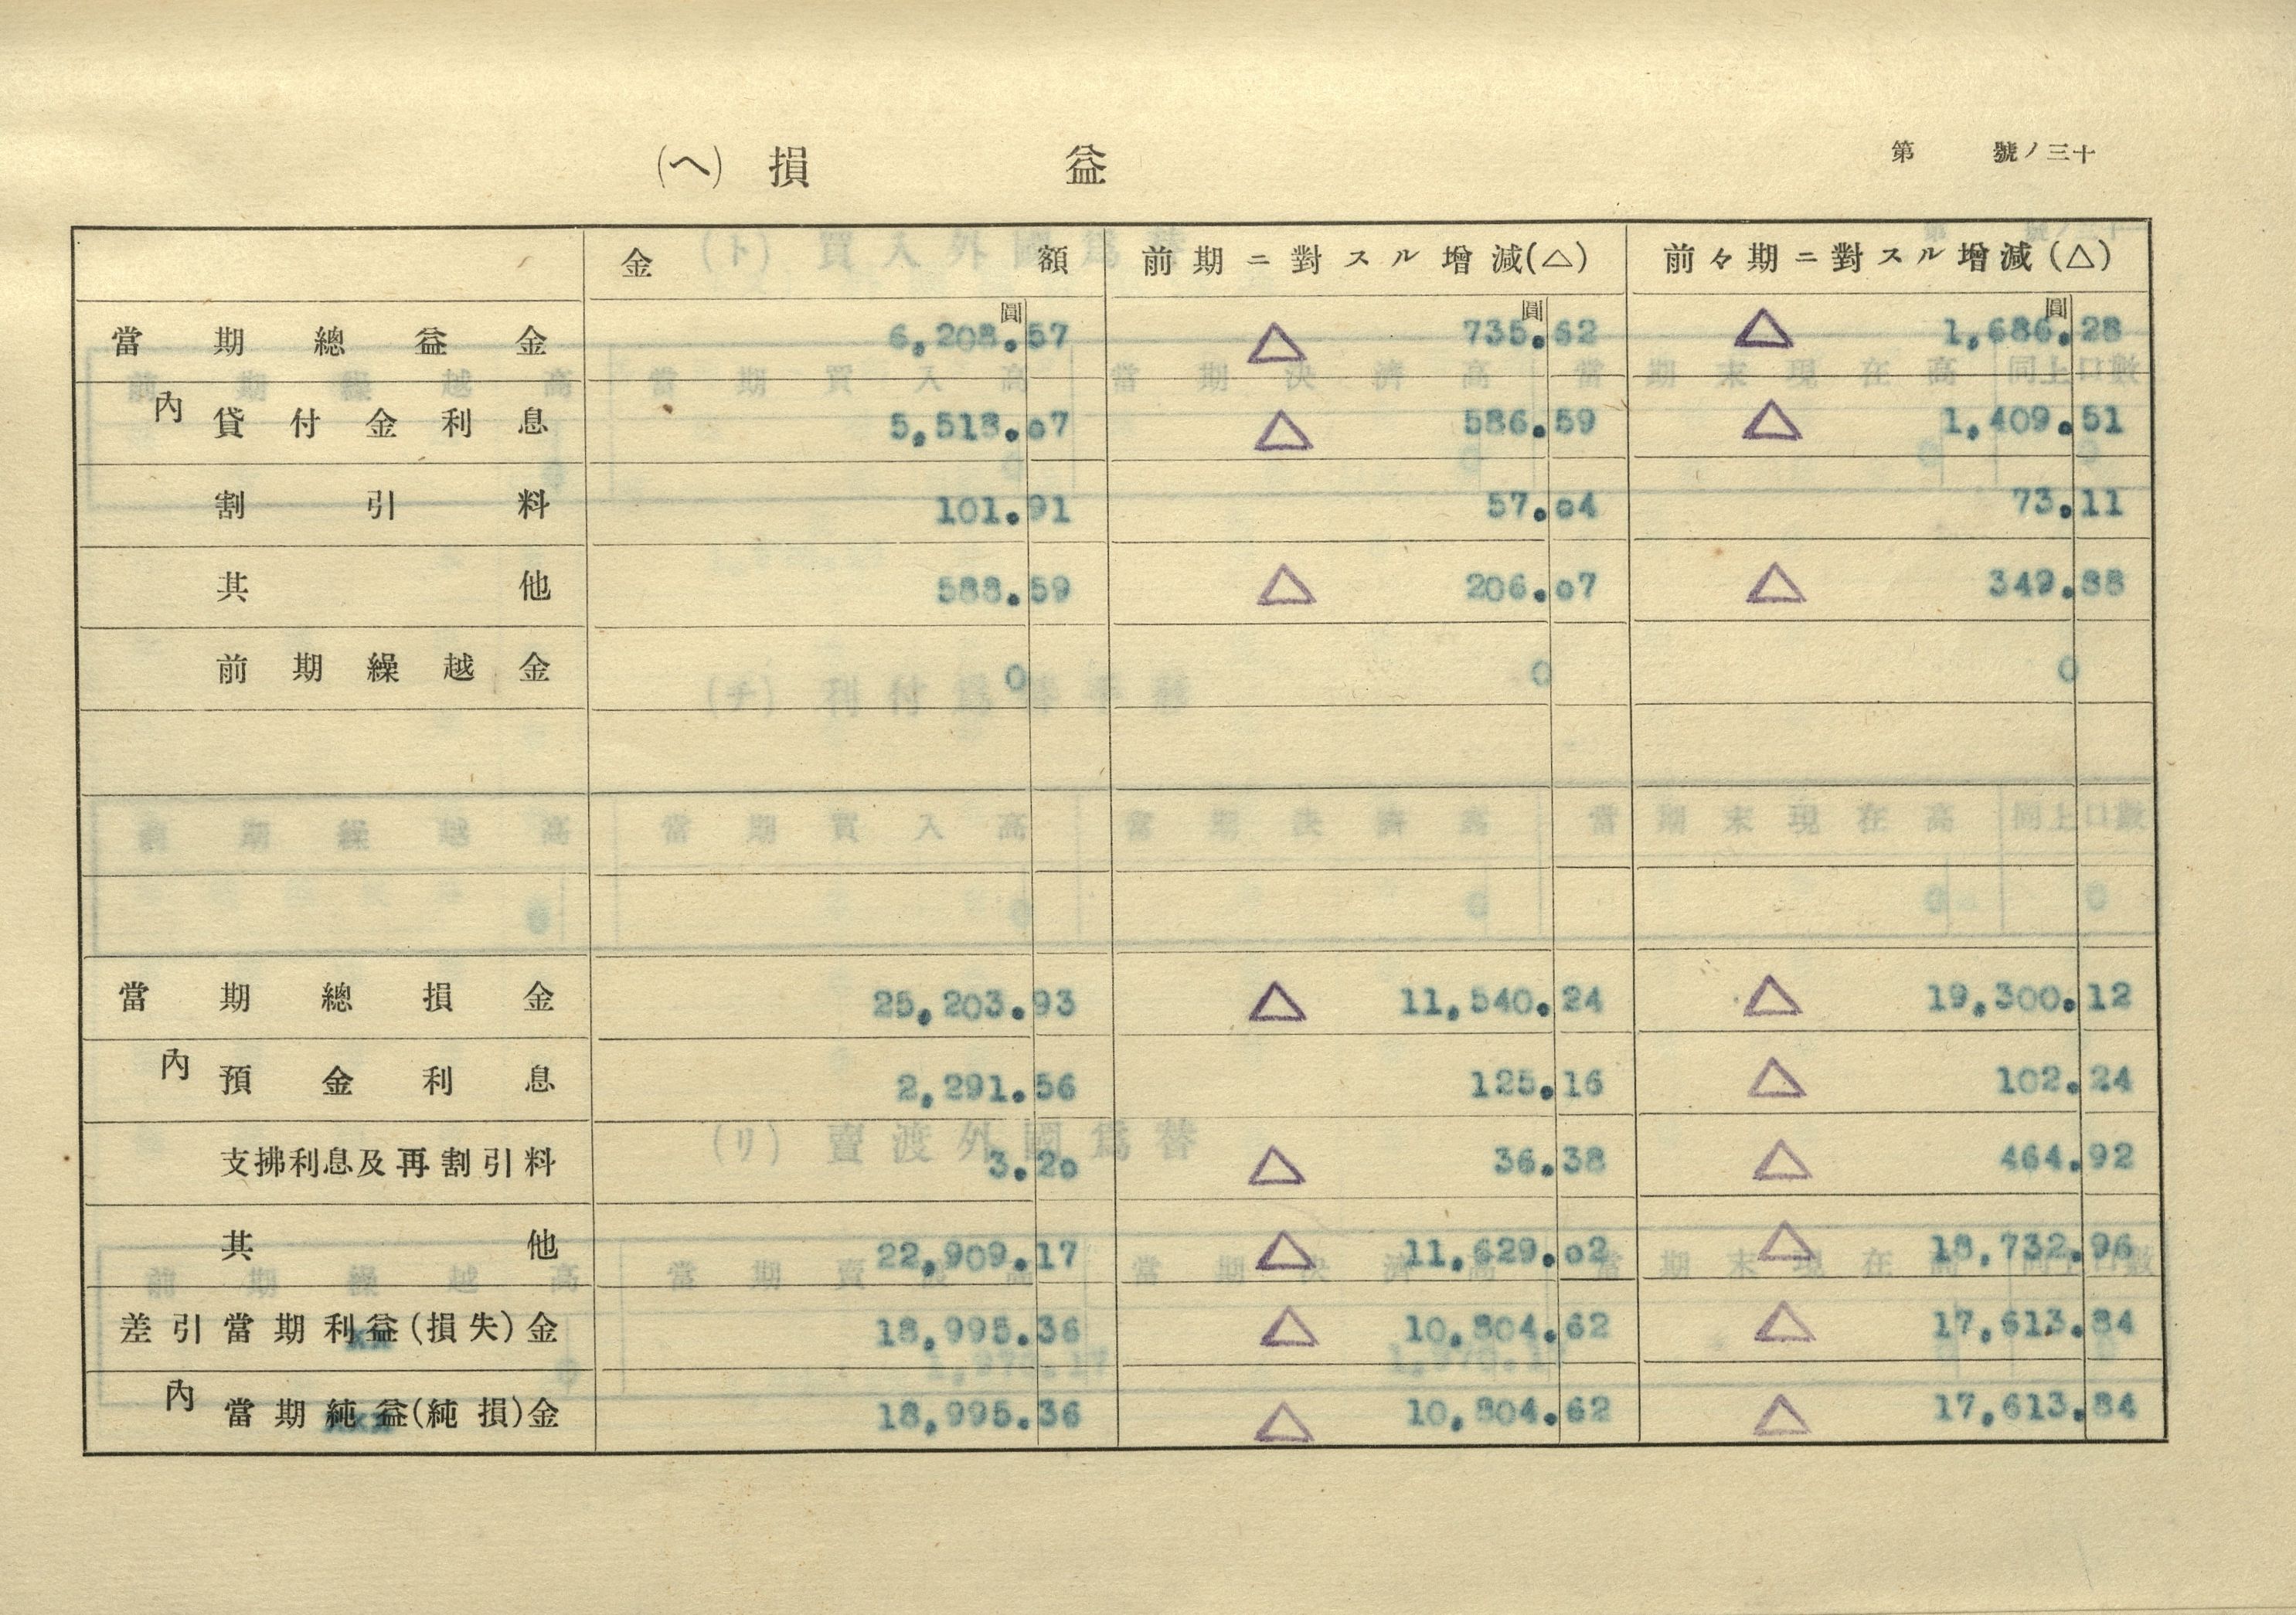 第 號ノ三十
(ヘ) 損 益
金 額 前期ニ對スル增減(△) 前々期ニ對スル增減(△)
圓 圓 圓
當期總益金 6,208.57 △ 735.62 △ 1,686.28
內 貸付金利息 5,518.07 △ 586.59 △ 1,409.51
割引料 101.91 57.04 73.11
其他 588.59 △ 206.07 △ 349.88
前期繰越金 0 0 0
當期總損金 25,203.93 △ 11,540.24 △ 19,300.12
內 預金利息 2,291.56 125.16 △ 102.24
支拂利息及再割引料 3.20 △ 36.38 △ 464.92
其他 22,909.17 △ 11,629.02 △ 18,732.96
差引當期利益(損失)金 18,995.36 △ 10,804.62 △ 17,613.84
內 當期純益(純損)金 18,995.36 △ 10,804.62 △ 17,613.84